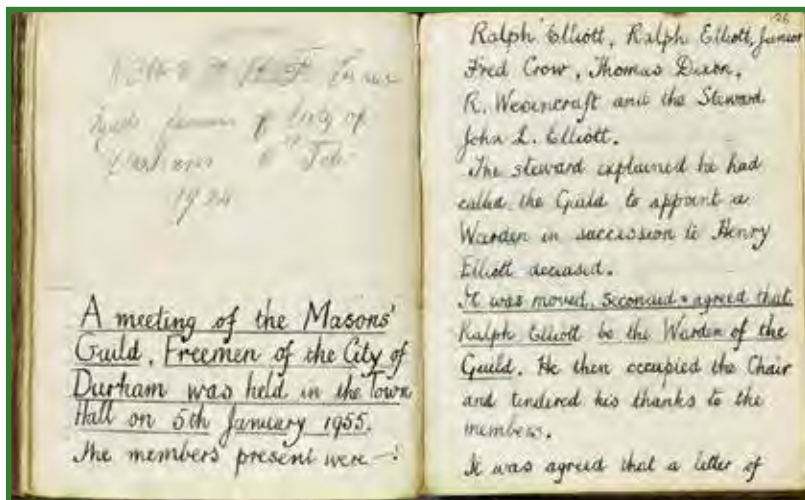 made freemen of City of
Durham 6th Feb
1924
A meeting of the Masons'
Guild, Freemen of the City of
Durham was held in the Town
Hall on 5th January 1955.
The members present were :-
126
Ralph Elliott, Ralph Elliott, Junior
Fred Crow, Thomas Dixon,
R. Wearncraft and the Steward
John L. Elliott.
The steward explained he had
called the Guild to appoint a
Warden in succession to Henry
Elliott deceased.
It was moved, seconded & agreed that
Ralph Elliott be the Warden of the
Guild. He then occupied the Chair
and tendered his thanks to the
members.
It was agreed that a letter of